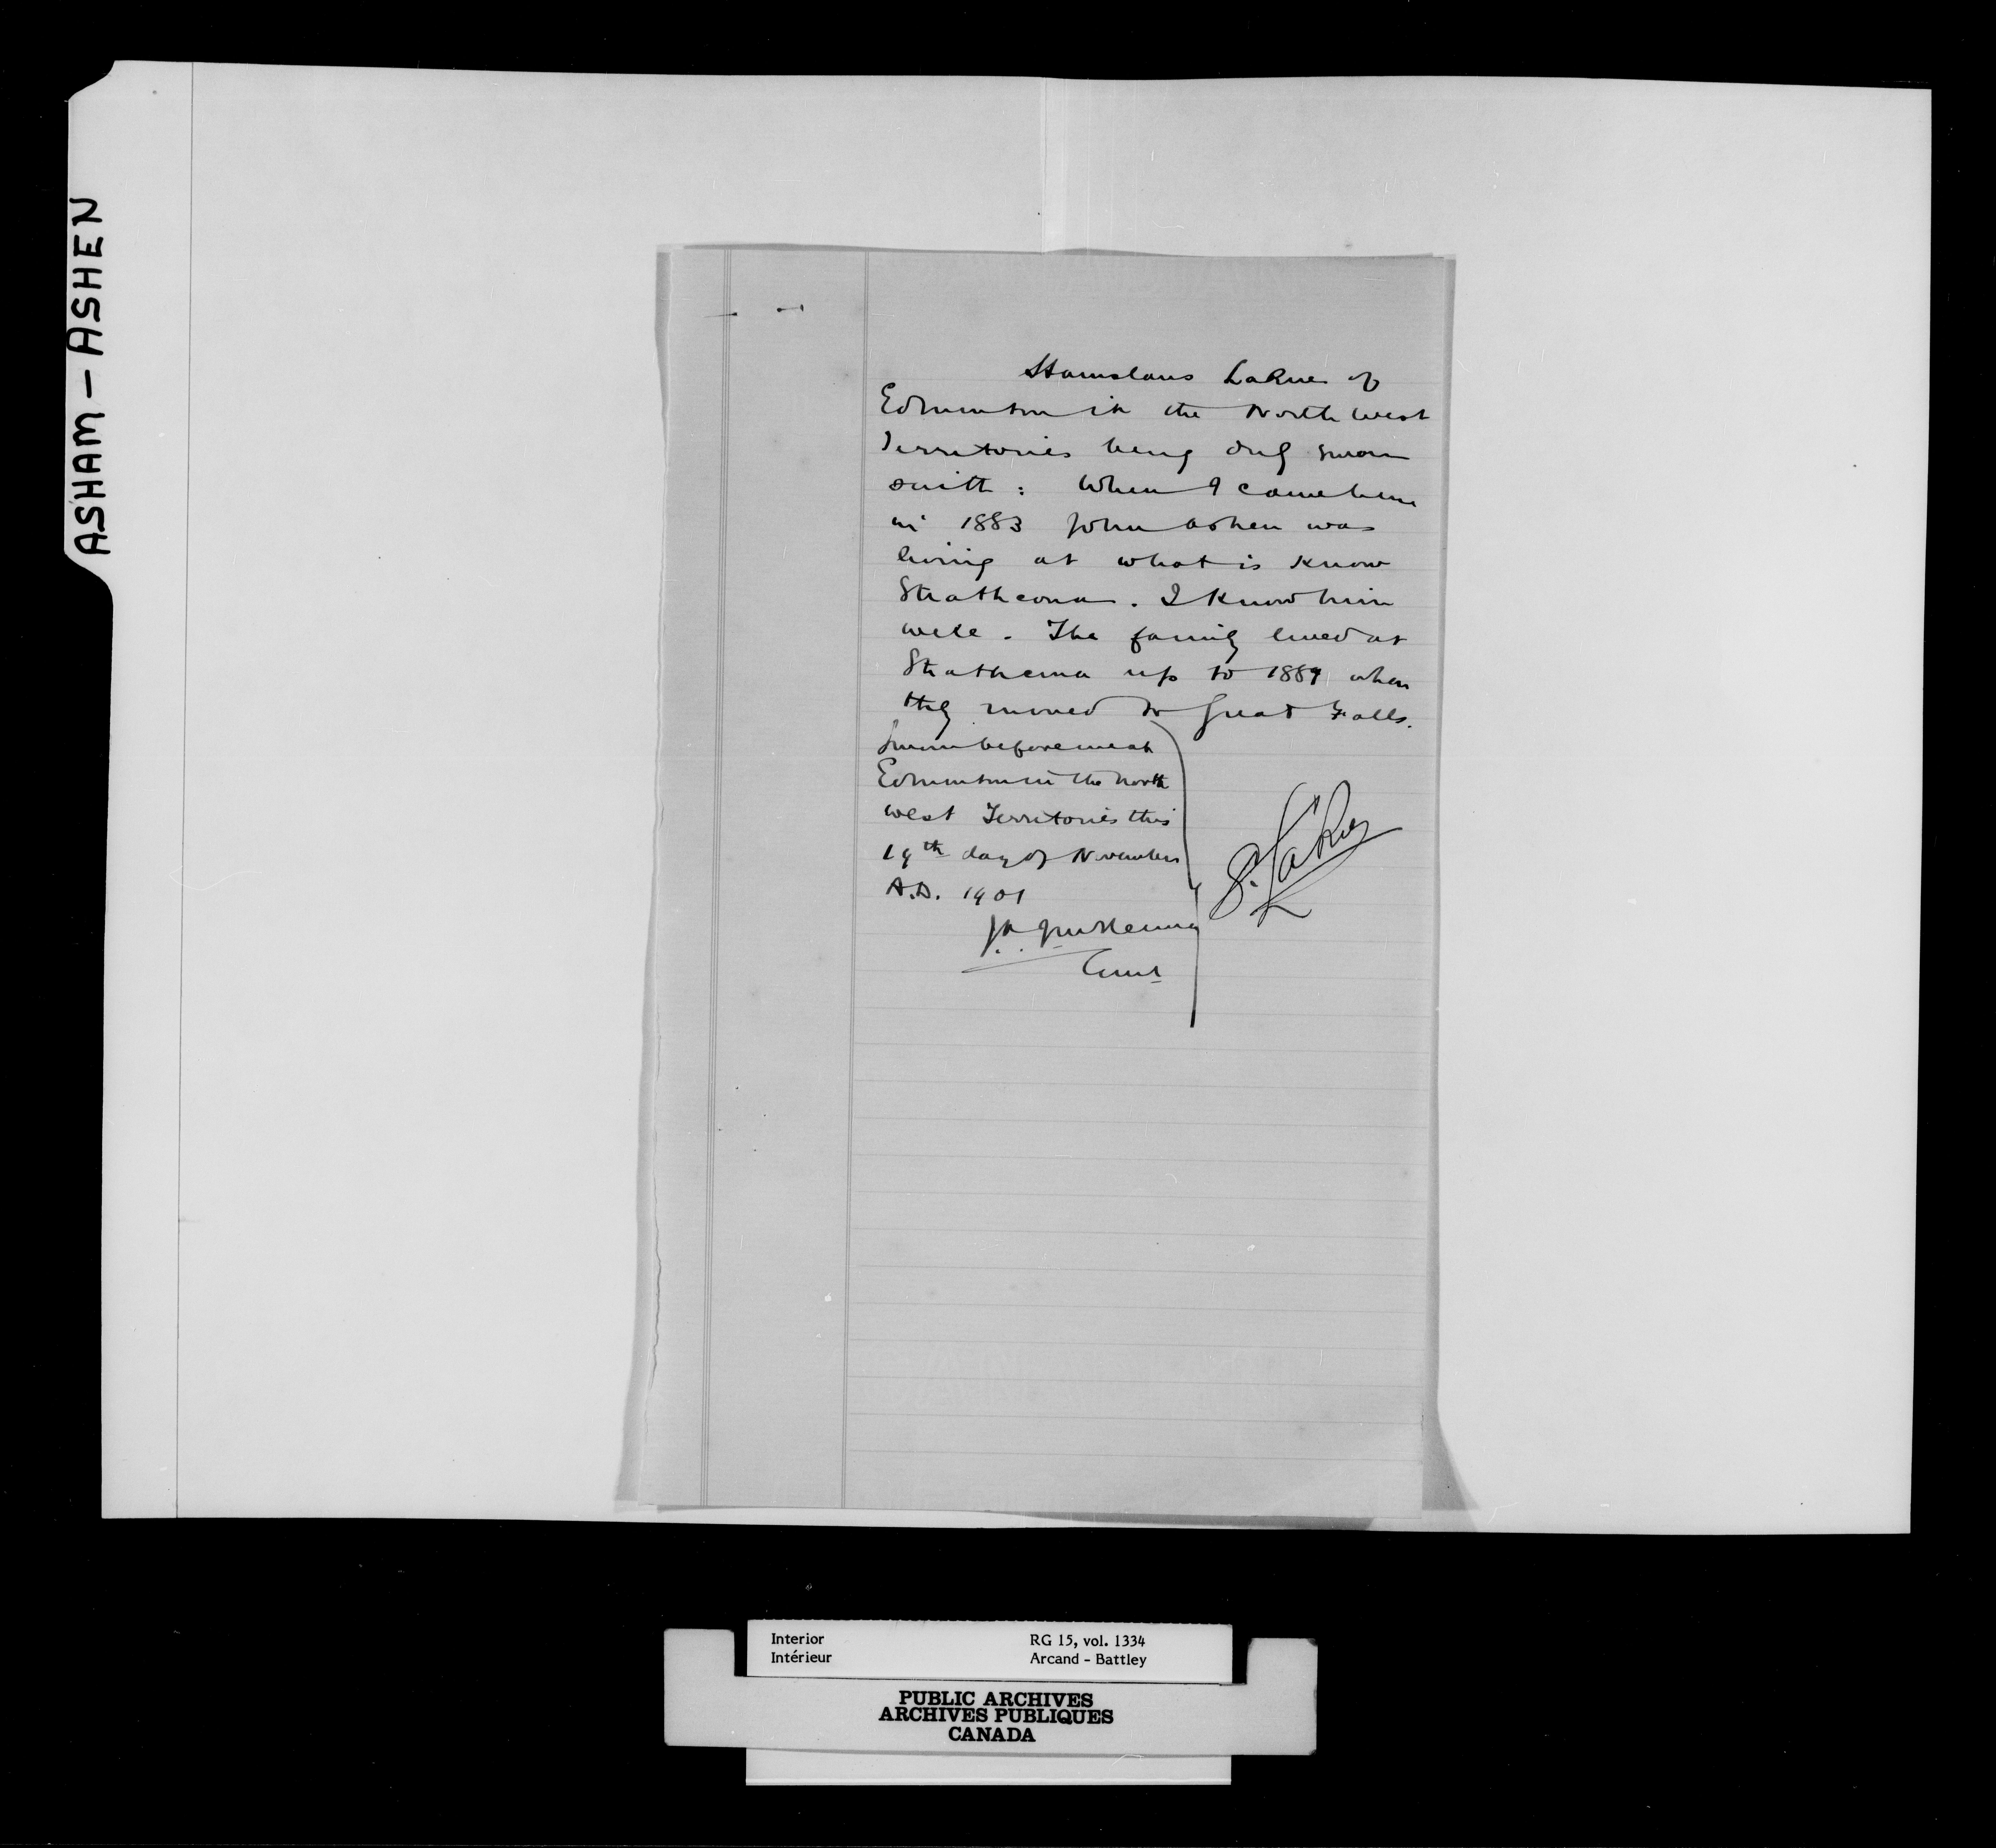 ASHAM - ASHEN
Stanislaus LaRue of
Edmonton in the North West
Territories being duly sworn
saith : When I came here
in 1883 John Ashen was
living at what is know
Strathcona. I know him
well. The family lived at
Strathcona up to 1889 when
they moved to Great Falls.
Sworn before me at
Edmonton in the North
West Territories this
19th day of November
A.D. 1901
S. LaRue
J.A. McKenna
Comr
Interior
Intérieur
RG 15, vol. 1334
Arcand - Battley
PUBLIC ARCHIVES
ARCHIVES PUBLIQUES
CANADA